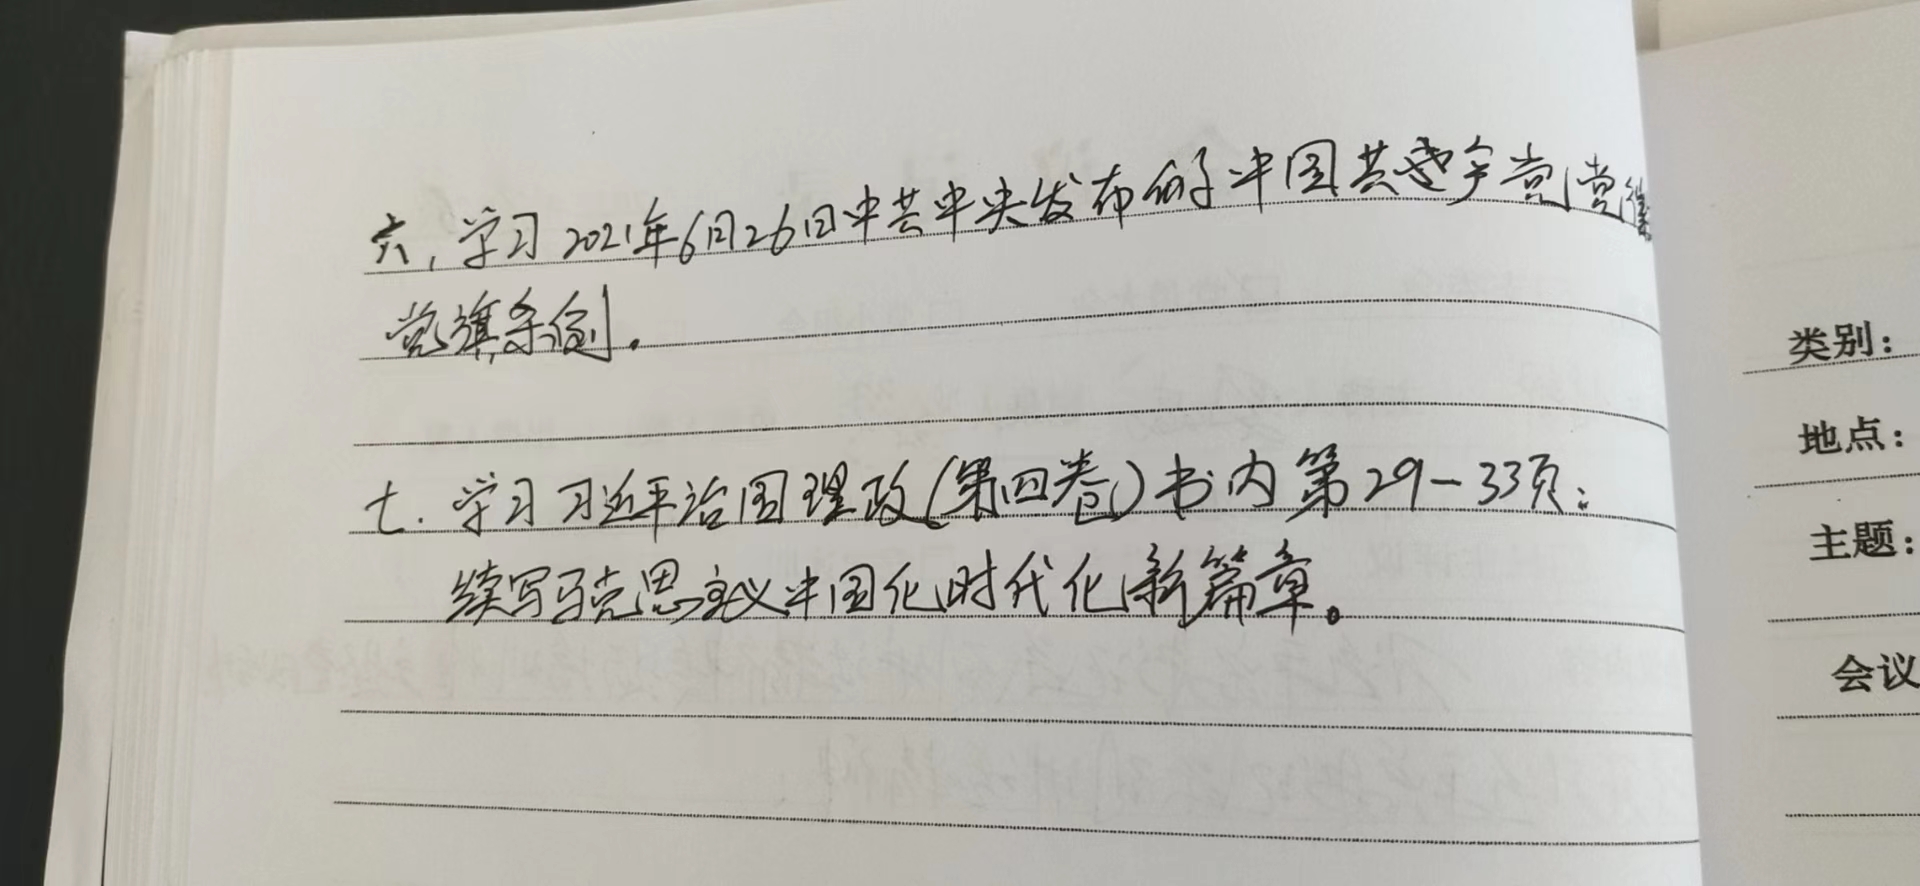 六，学习2021年6月26日中共中央发布的中国共产党党徽
党旗条例.
七.学习习近平治国理政(第四卷)书内第29-33页:
续写马克思主义中国化时代化新篇章。
类别:
地点:
主题:
会议